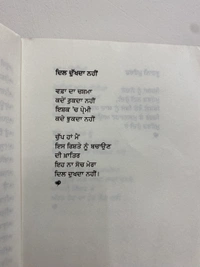 ਦਿਲ ਦੁੱਖਦਾ ਨਹੀਂ
ਵਫ਼ਾ ਦਾ ਚਸ਼ਮਾ
ਕਦੇਂ ਰੁਕਦਾ ਨਹੀਂ
ਇਸ਼ਕ 'ਚ ਪ੍ਰੇਮੀ
ਕਦੇ ਝੁਕਦਾ ਨਹੀਂ
ਚੁੱਪ ਹਾਂ ਮੈਂ
ਇਸ ਰਿਸ਼ਤੇ ਨੂੰ ਬਚਾਉਣ
ਦੀ ਖ਼ਾਤਿਰ
ਇਹ ਨਾ ਸੋਚ ਮੇਰਾ
ਦਿਲ ਦੁਖਦਾ ਨਹੀਂ।